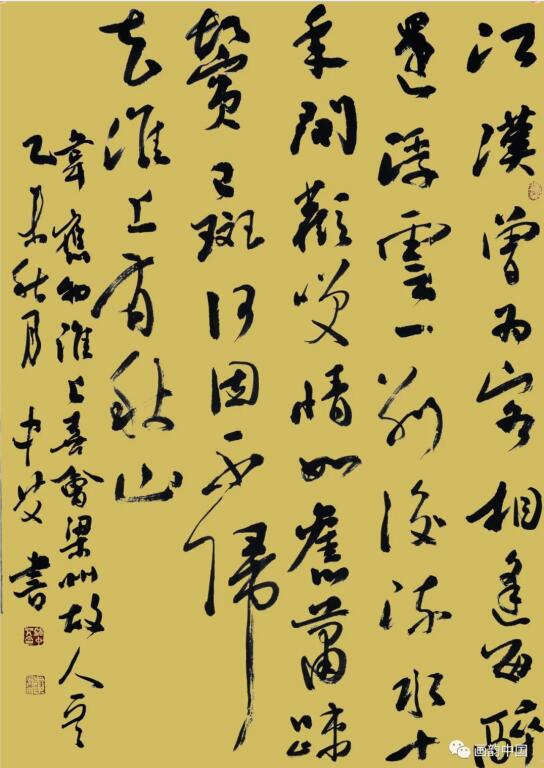 江漢曾为客相逢每醉
還浮雲一别後流水十
年間歡咲情如舊蕭踈
鬢已斑何因不歸
去淮上有秋山
韋應物淮上喜會梁州故人
乙未秋月書
画韵中国